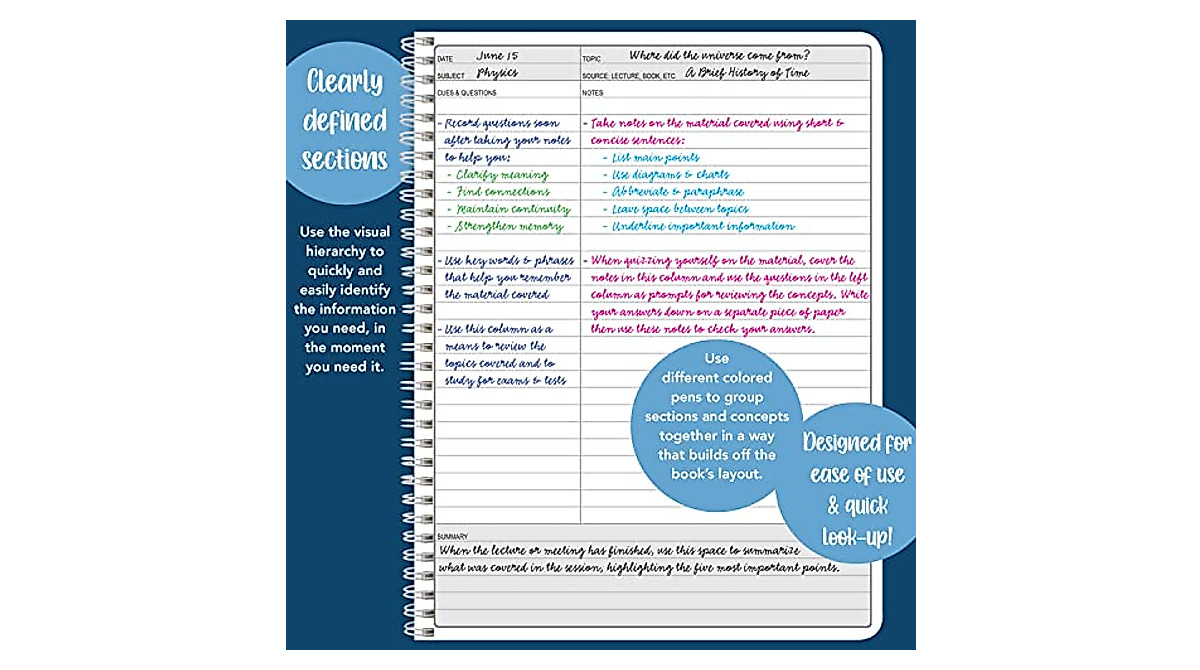 Clearly
defined
sections
Use the visual
hierarchy to
quickly and
easily identify
the information
you need, in
the moment
you need it.
DATE June 15
TOPIC Where did the universe come from?
SUBJECT Physics
SOURCE; LECTURE, BOOK, ETC. A Brief History of Time
CUES & QUESTIONS
- Record questions soon
after taking your notes
to help you:
- Clarify meaning
- Find connections
- Maintain continuity
- Strengthen memory
- Use key words & phrases
that help you remember
the material covered
- Use this column as a
means to review the
topics covered and to
study for exams & tests
NOTES
- Take notes on the material covered using short &
concise sentences:
- List main points
- Use diagrams & charts
- Abbreviate & paraphrase
- Leave space between topics
- Underline important information
- When quizzing yourself on the material, cover the
notes in this column and use the questions in the left
column as prompts for reviewing the concepts. Write
your answers down on a separate piece of paper
then use these notes to check your answers.
Use
different colored
pens to group
sections and concepts
together in a way
that builds off the
book's layout.
Designed for
ease of use
& quick
look-up!
SUMMARY
When the lecture or meeting has finished, use this space to summarize
what was covered in the session, highlighting the five most important points.